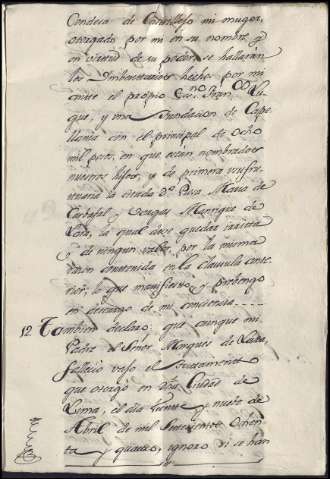 Condesa de Castillejo mi muger,
otorgado por mi en su nombre y
en virtud de su poder, se hallarán
los Imbentarios hechos por mi
ante el propio Esc.no Fran.co Lu
que, y una Fundacion de Cape
llania con el principal de ocho
mil pesos, en que están nombrados
nuestros hijos, y de primera usufruc
tuaria la citada D.a Rosa Maria de
Carbajal y Vargas Manrique de
Lara, la qual dice quedar irrita
y de ningun valor, por la misma
razon contenida en la Clausula ante
rior, lo que manifiesto y prebengo
en descargo de mi conciencia
12 Tambien declaro, que aunque mi
Padre el Señor Marques de Lara,
fallecio vajo el Testamento
que otorgó en dha Ciudad de
Lima, el dia Veinte y nueve de
Abril de mil Setecientos Ochen
ta y quatro, ignoro si se han